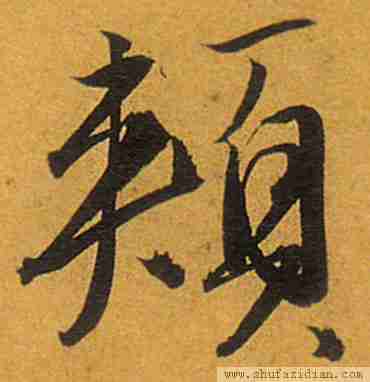 頼
www.shufazidian.com